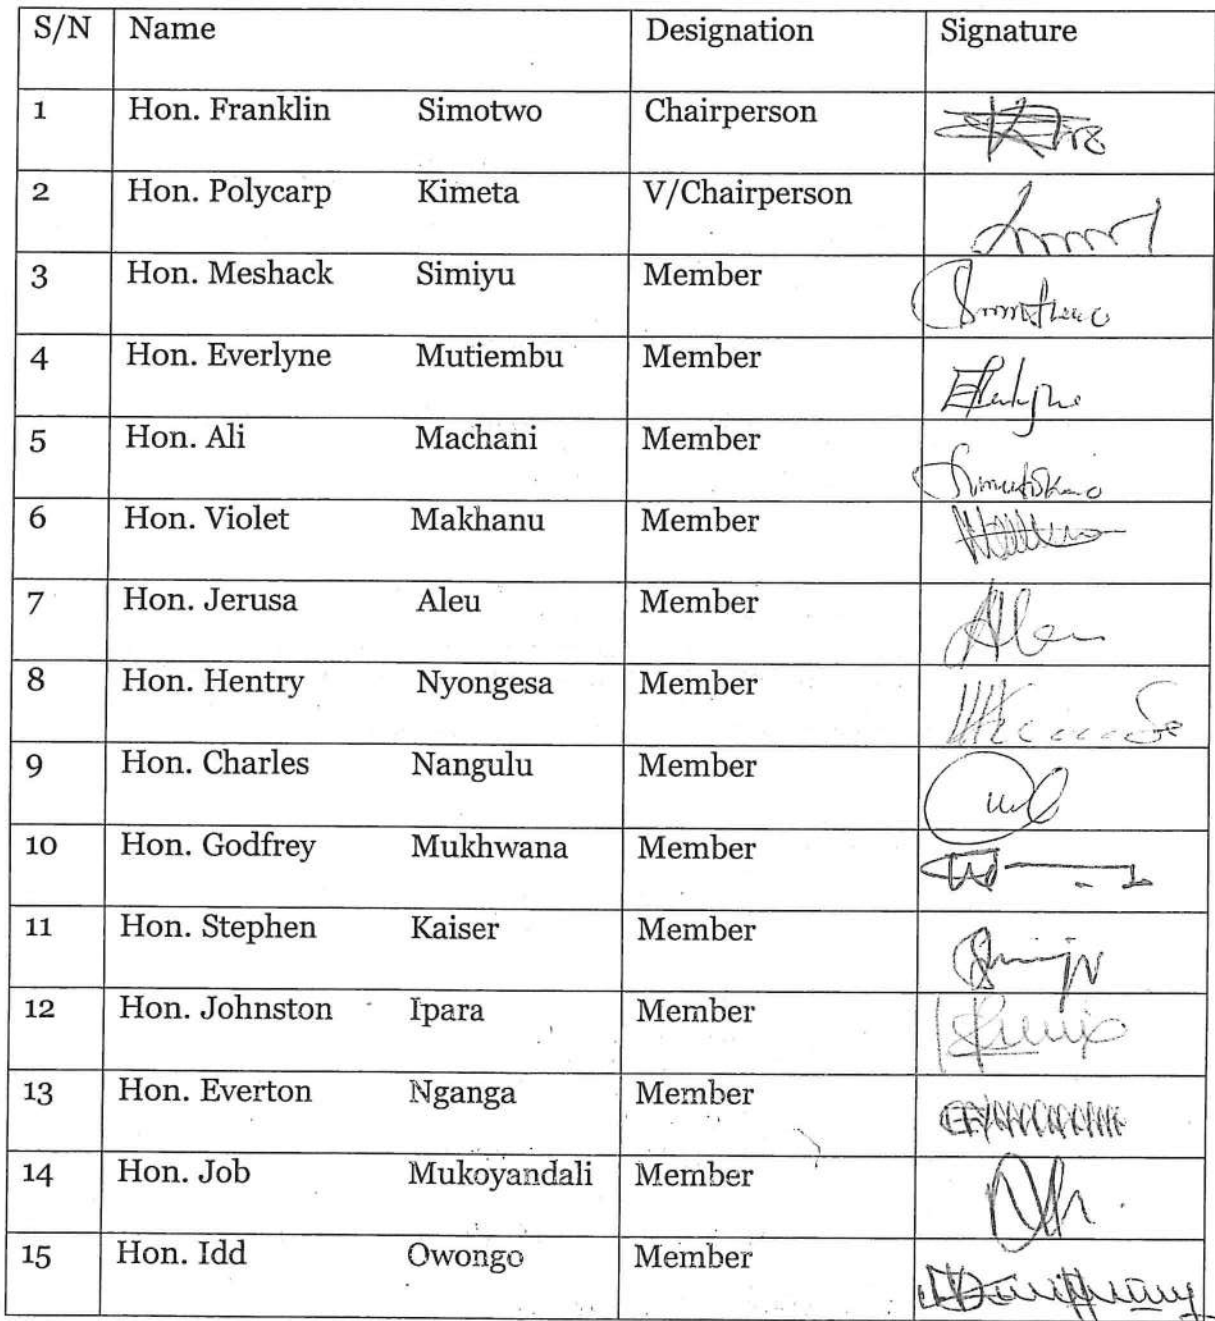 S/N Name Designation Signature
1 Hon. Franklin Simotwo Chairperson
2 Hon. Polycarp Kimeta V/Chairperson
3 Hon. Meshack Simiyu Member
4 Hon. Everlyne Mutiembu Member
5 Hon. Ali Machani Member
6 Hon. Violet Makhanu Member
7 Hon. Jerusa Aleu Member
8 Hon. Hentry Nyongesa Member
9 Hon. Charles Nangulu Member
10 Hon. Godfrey Mukhwana Member
11 Hon. Stephen Kaiser Member
12 Hon. Johnston Ipara Member
13 Hon. Everton Nganga Member
14 Hon. Job Mukoyandali Member
15 Hon. Idd Owongo Member